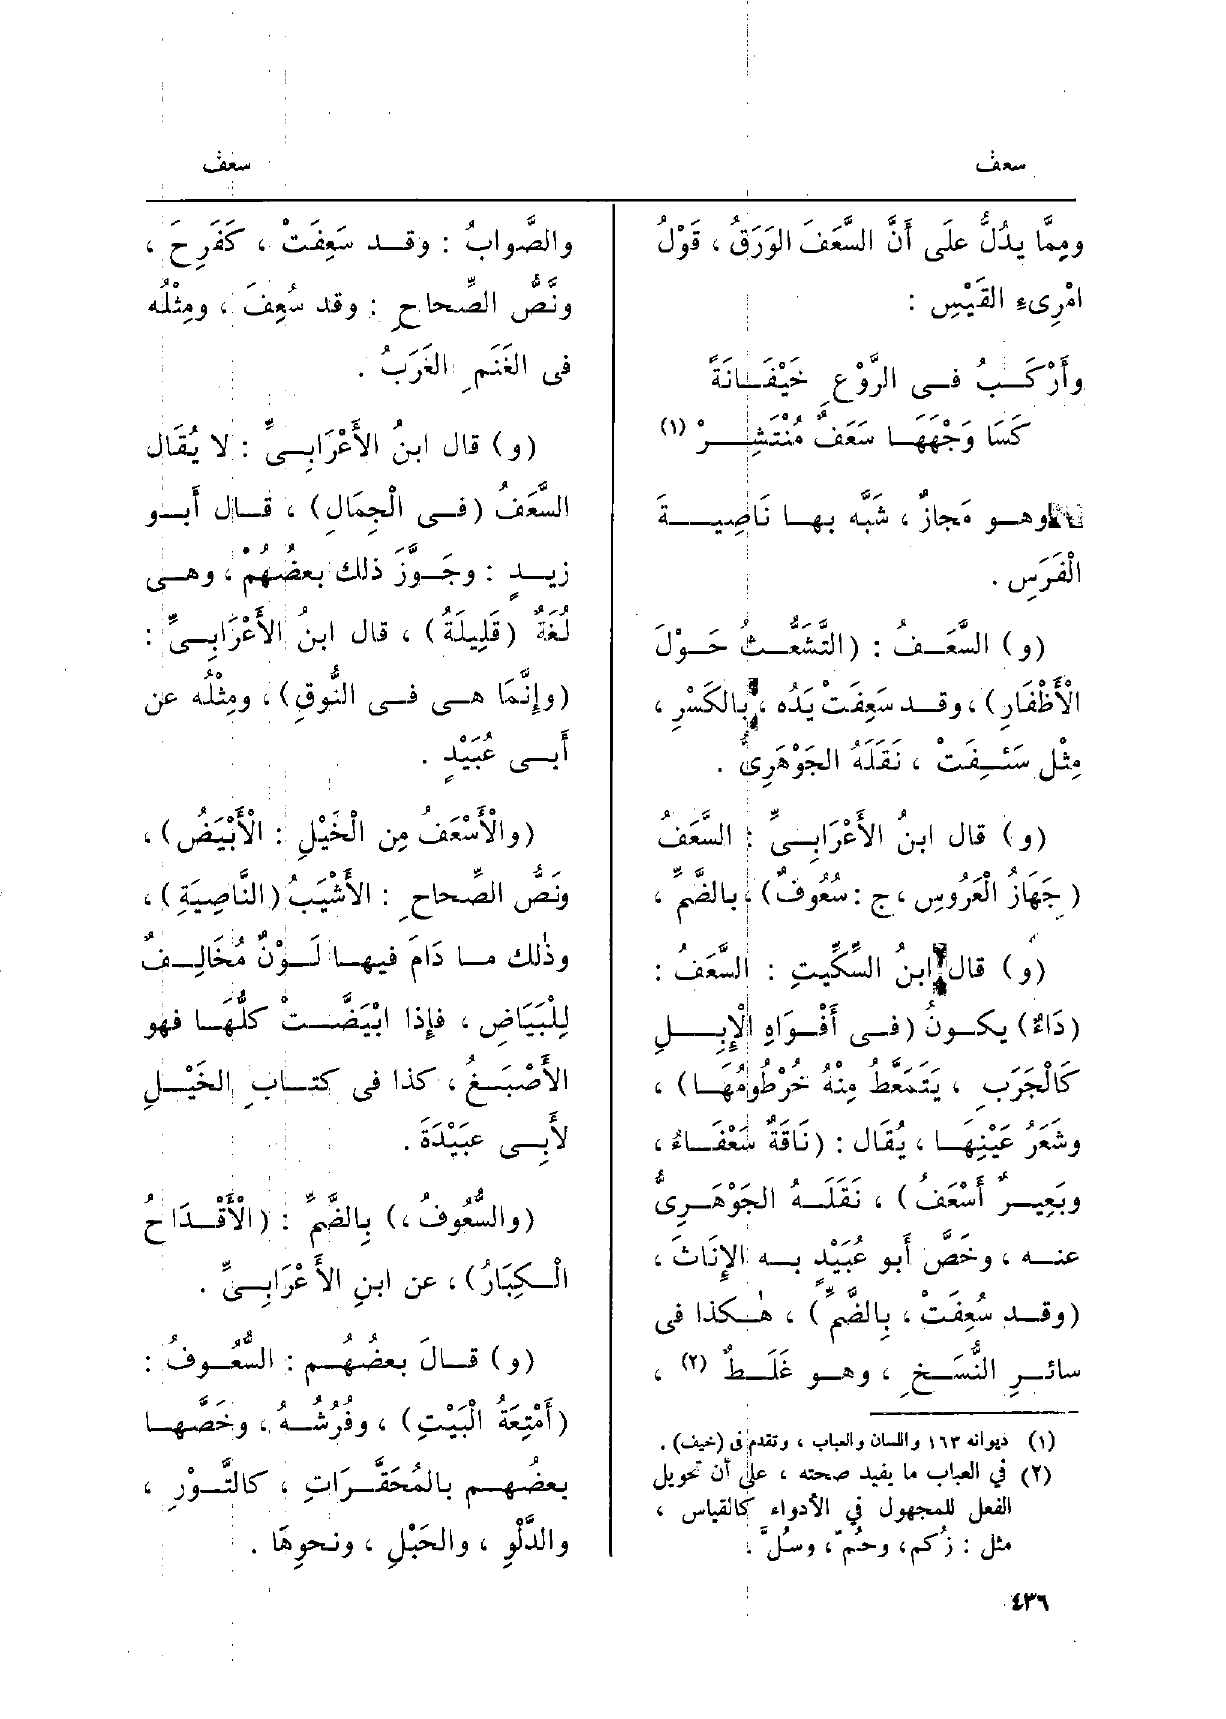 سعف
سعف
ومِمَّا يدُلُّ على أَنَّ السَّعَفَ الوَرَقُ ، قَوْلُ
امْرِىءِ القَيْسِ :
وأَرْكَبُ فى الرَّوْعِ خَيْفَانَةً
كَسَا وَجْهَهَا سَعَفٌ مُنْتَشِرْ (١)
وهو مَجازٌ ، شَبَّه بها نَاصِيَةَ
الْفَرَسِ .
(و) السَّعَفُ : (التَّشَعُّثُ حَوْلَ
الْأَظْفَارِ) ، وقد سَعِفَتْ يَدُه ، بالكَسْرِ ،
مِثْل سَئِفَتْ ، نَقَلَهُ الجَوْهَرِىُّ .
(و) قال ابنُ الأَعْرَابِىِّ : السَّعَفُ
(جَهَازُ الْعَرُوسِ ، ج : سُعُوفٌ) ، بالضَّمِّ ،
(و) قال ابنُ السِّكِّيتِ : السَّعَفُ :
(دَاءٌ) يكونُ (فى أَفْوَاهِ الْإِبِلِ
كَالْجَرَبِ ، يَتَمَعَّطُ مِنْهُ خُرْطُومُهَا) ،
وشَعَرُ عَيْنِهَا ، يُقَال : (نَاقَةٌ سَعْفَاءُ ،
وبَعِيرٌ أَسْعَفُ) ، نَقَلَهُ الجَوْهَرِىُّ
عنه ، وخَصَّ أبو عُبَيْدٍ به الإِنَاثَ ،
(وقد سُعِفَتْ ، بِالضَّمِّ) ، هٰكذا فى
سائرِ النُّسَخِ ، وهو غَلَطٌ (٢) ،
(١) ديوانه ١٦٣ واللسان والعباب ، وتقدم فى (خيف) .
(٢) في العباب ما يفيد صحته ، على أن تحويل
الفعل للمجهول في الأدواء كالقياس ،
مثل : زُكم ، وحُمّ ، وسُلَّ .
والصَّوابُ : وقد سَعِفَتْ ، كَفَرِحَ ،
ونَصُّ الصِّحاحِ : وقد سُعِفَ ، ومِثْلُه
فى الغَنَمِ الغَرَبُ .
(و) قال ابنُ الأَعْرَابِىِّ : لا يُقَال
السَّعَفُ (فى الْجِمَالِ) ، قال أَبو
زيدٍ : وجَوَّزَ ذلك بعضُهُمْ ، وهى
لُغَةٌ (قَلِيلَةٌ) ، قال ابنُ الأَعْرَابِىِّ :
(وإِنَّمَا هى فى النُّوقِ) ، ومِثْلُه عن
أَبى عُبَيْدٍ .
(والْأَسْعَفُ مِن الْخَيْلِ : الْأَبْيَضُ) ،
ونَصُّ الصِّحاحِ : الأَشْيَبُ (النَّاصِيَةِ) ،
وذٰلك ما دَامَ فيها لَوْنٌ مُخَالِفٌ
لِلْبَيَاضِ ، فإِذا ابْيَضَّتْ كلُّهَا فهو
الأَصْبَغُ ، كذا فى كتابِ الخَيْلِ
لأَبِى عبَيْدَةَ .
(والسُّعُوفُ ،) بِالضَّمِّ : (الْأَقْدَاحُ
الْكِبَارُ) ، عن ابنِ الأَعْرَابِىِّ .
(و) قالَ بعضُهُم : السُّعُوفُ :
(أَمْتِعَةُ الْبَيْتِ) ، وفُرُشُهُ ، وخَصَّها
بعضُهم بالمُحَقَّرَاتِ ، كالتَّوْرِ ،
والدَّلْوِ ، والحَبْلِ ، ونحوِهَا .
٤٣٦